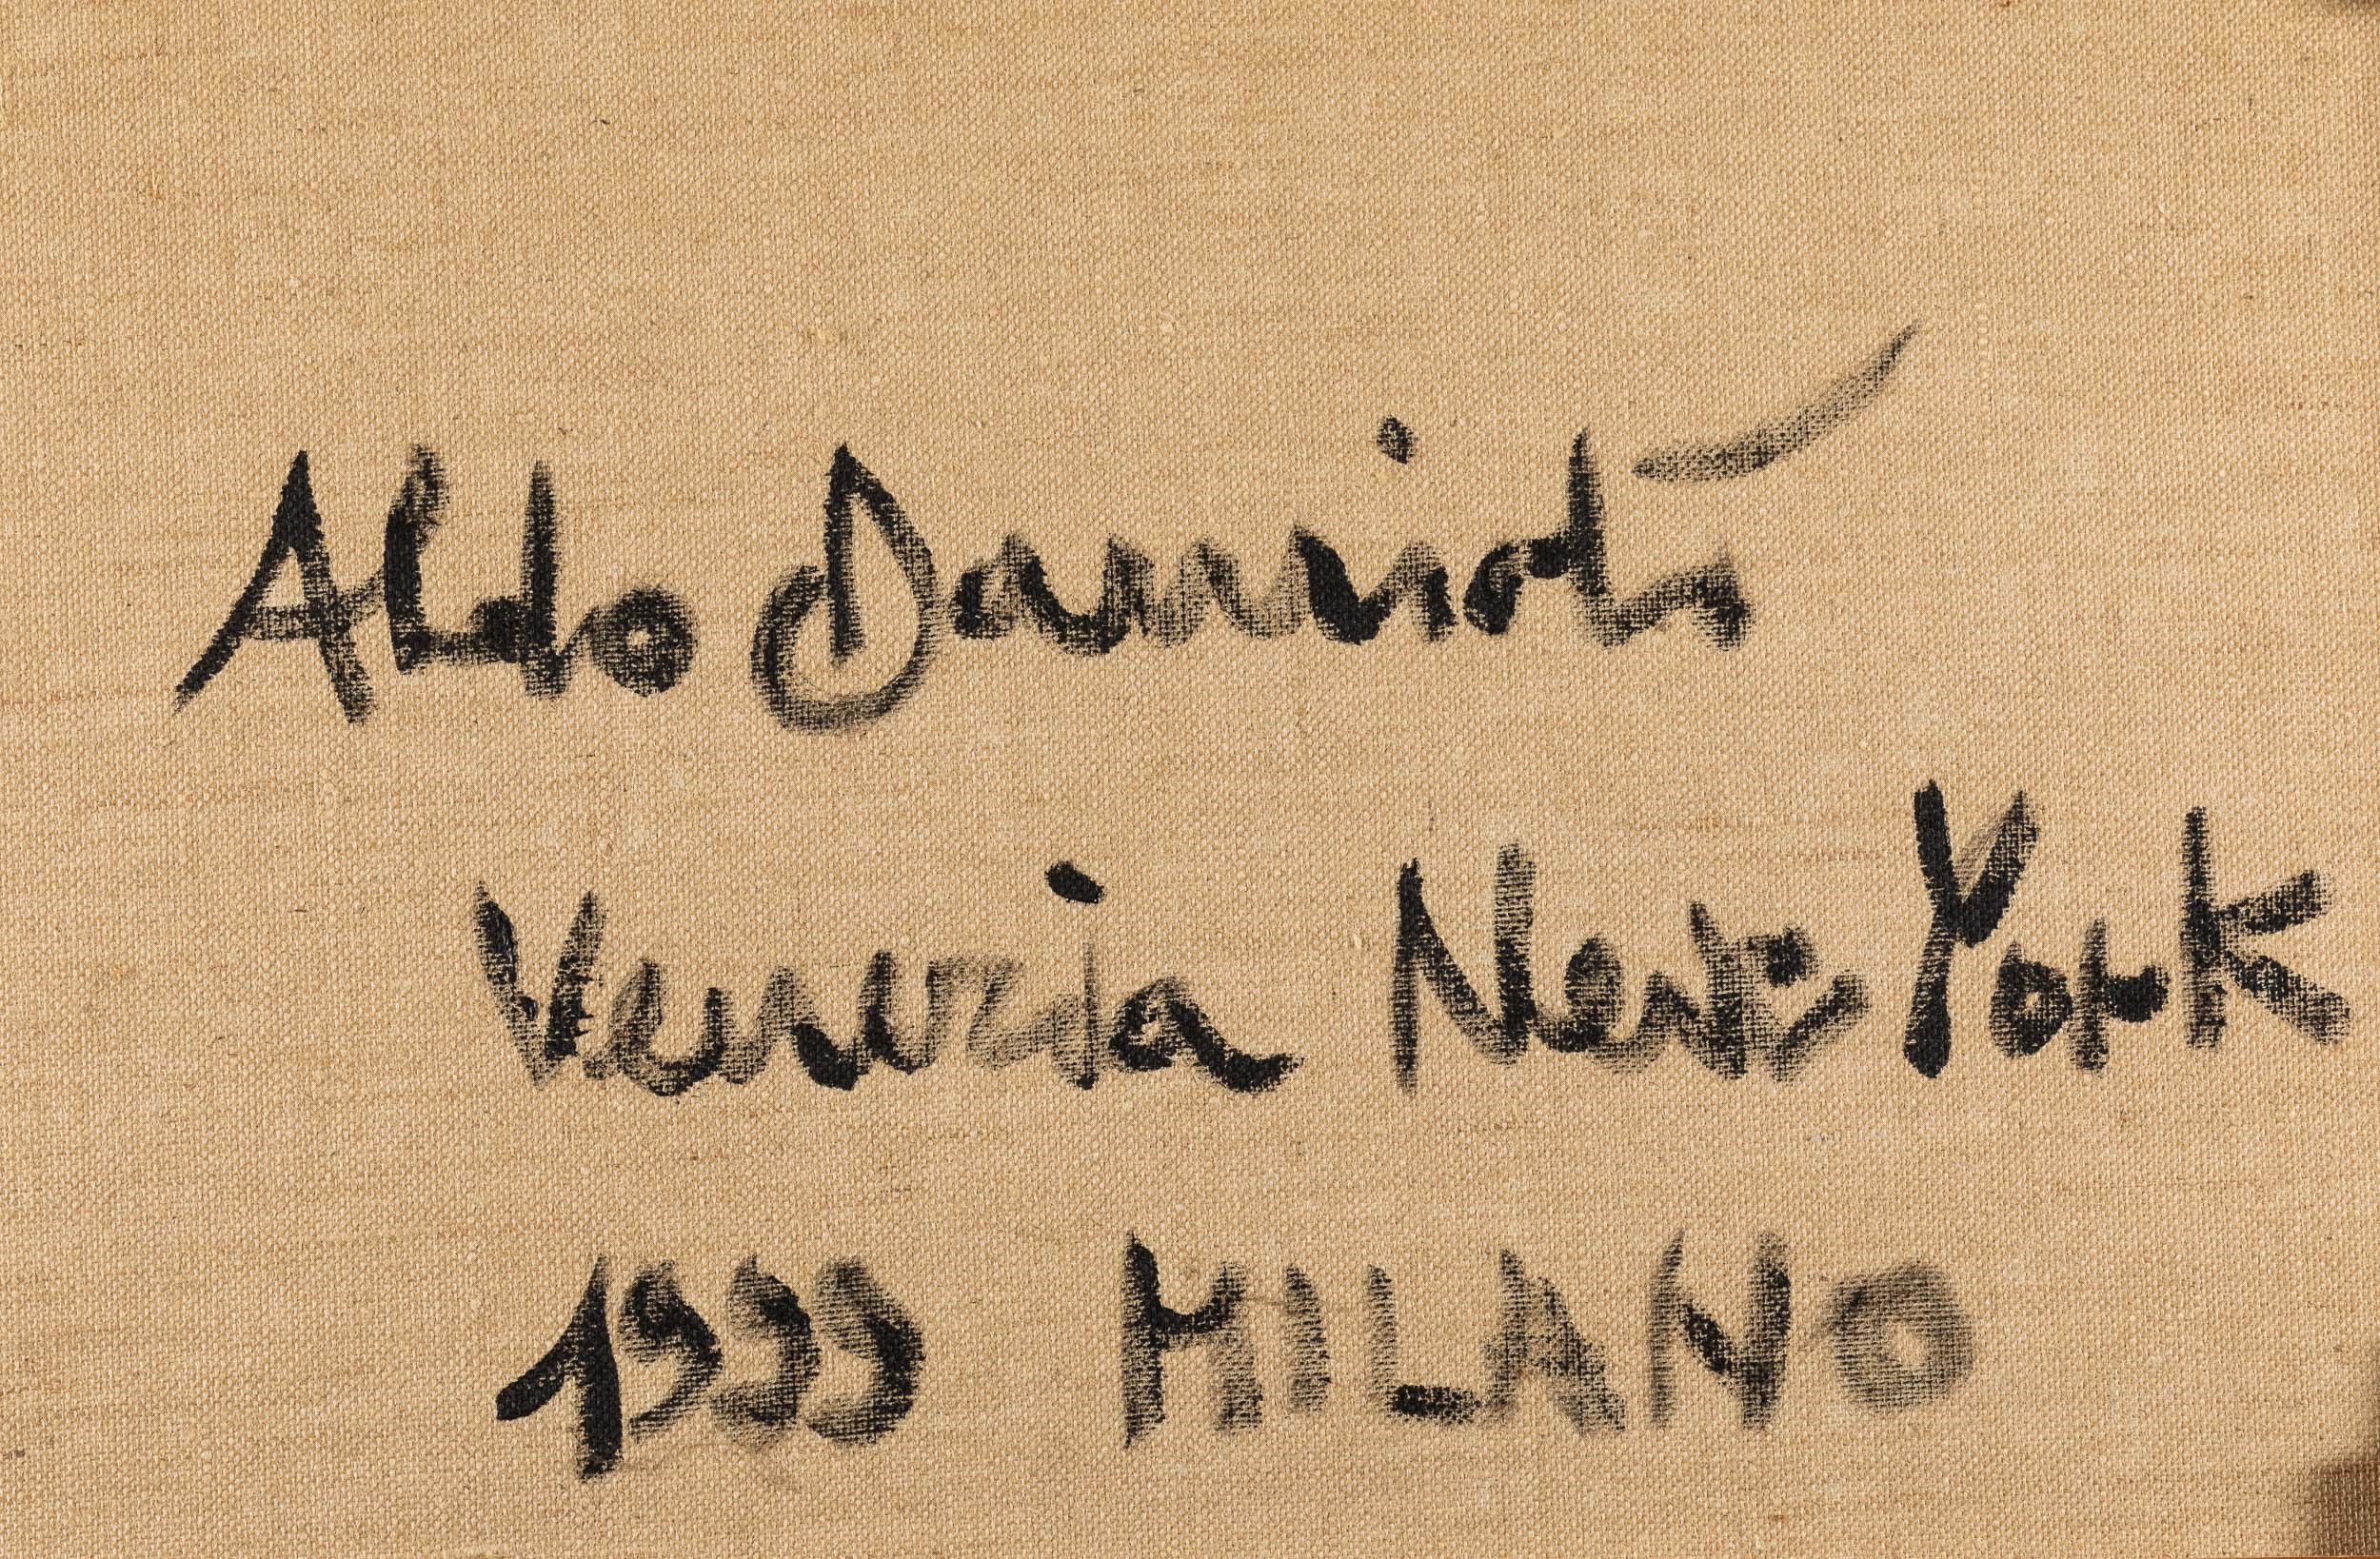 Aldo Damioli
Venezia New York
1999 MILANO